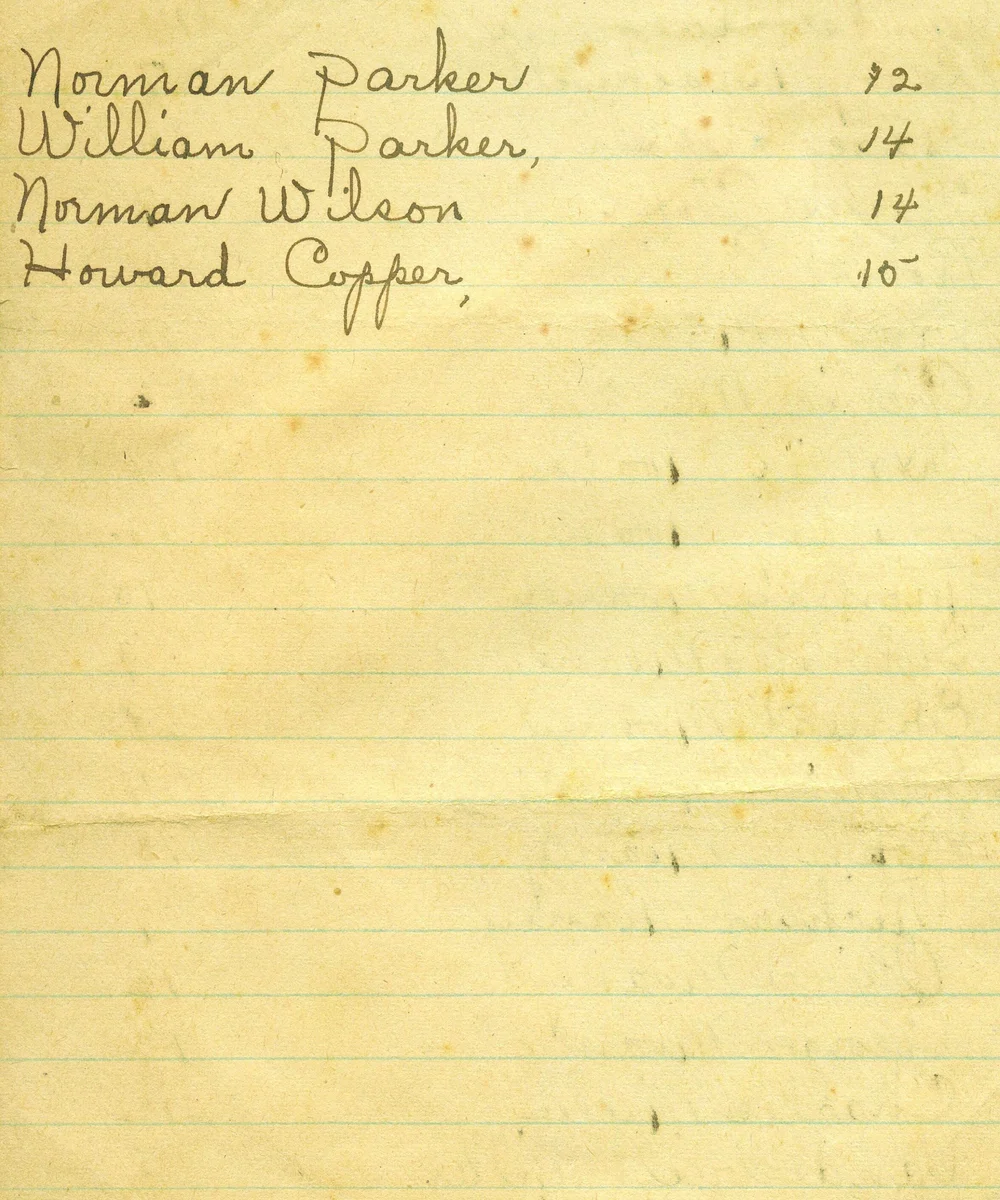 Norman Parker 12
William Parker, 14
Norman Wilson 14
Howard Copper, 15